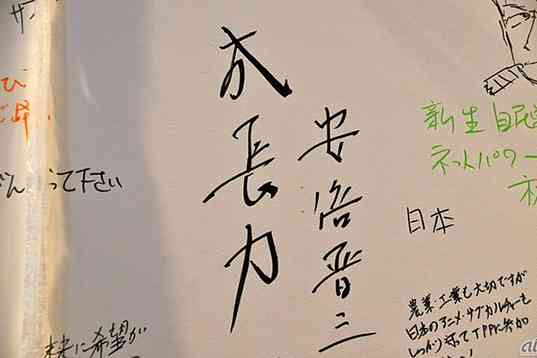 成長力
安倍晋三
新生 自民
ネットパワー
日本
農業・工業も大切ですが
日本のアニメ・サブカルチャーも
しっかり守ってTPPに参加
って下さい
未来に希望が